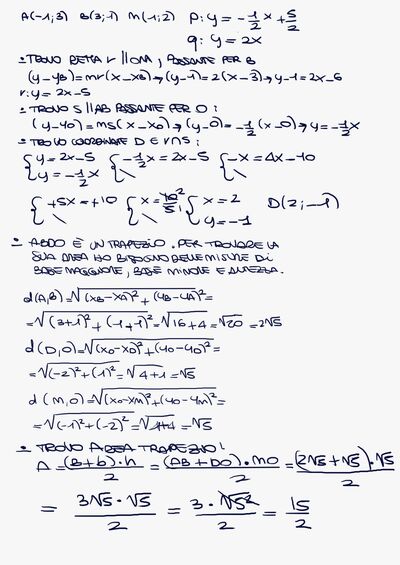 A(-1;3) B(3;1) M(1;2) p: y = -1/2 x + 5/2
q: y = 2x
• TROVO RETTA r // OM, PASSANTE PER B
(y-yB) = mr(x-xB) → (y-1) = 2(x-3) → y-1 = 2x-6
r: y = 2x-5
• TROVO S // AB PASSANTE PER O:
(y-yO) = ms(x-xO) → (y-0) = -1/2(x-0) → y = -1/2x
• TROVO COORDINATE D = r∩s:
{y = 2x-5 {-1/2x = 2x-5 {-x = 4x-10
{y = -1/2x {\ {\
{+5x = +10 {x = 10/5 2 {x = 2 D(2;-1)
{\ {\ {y = -1
• ABDO È UN TRAPEZIO. PER TROVARE LA
SUA AREA HO BISOGNO DELLE MISURE DI
BASE MAGGIORE, BASE MINORE E ALTEZZA.
d(A,B) = √(xB-xA)² + (yB-yA)² =
= √(3+1)² + (-1+1)² = √16+4 = √20 = 2√5
d(D,O) = √(xO-xD)² + (yO-yD)² =
= √(-2)² + (1)² = √4+1 = √5
d(M,O) = √(xO-xM)² + (yO-yM)² =
= √(-1)² + (-2)² = √1+4 = √5
• TROVO AREA TRAPEZIO:
A = (B+b)·h/2 = (AB+DO)·MO/2 = (2√5+√5)·√5/2
= 3√5·√5/2 = 3·√5²/2 = 15/2